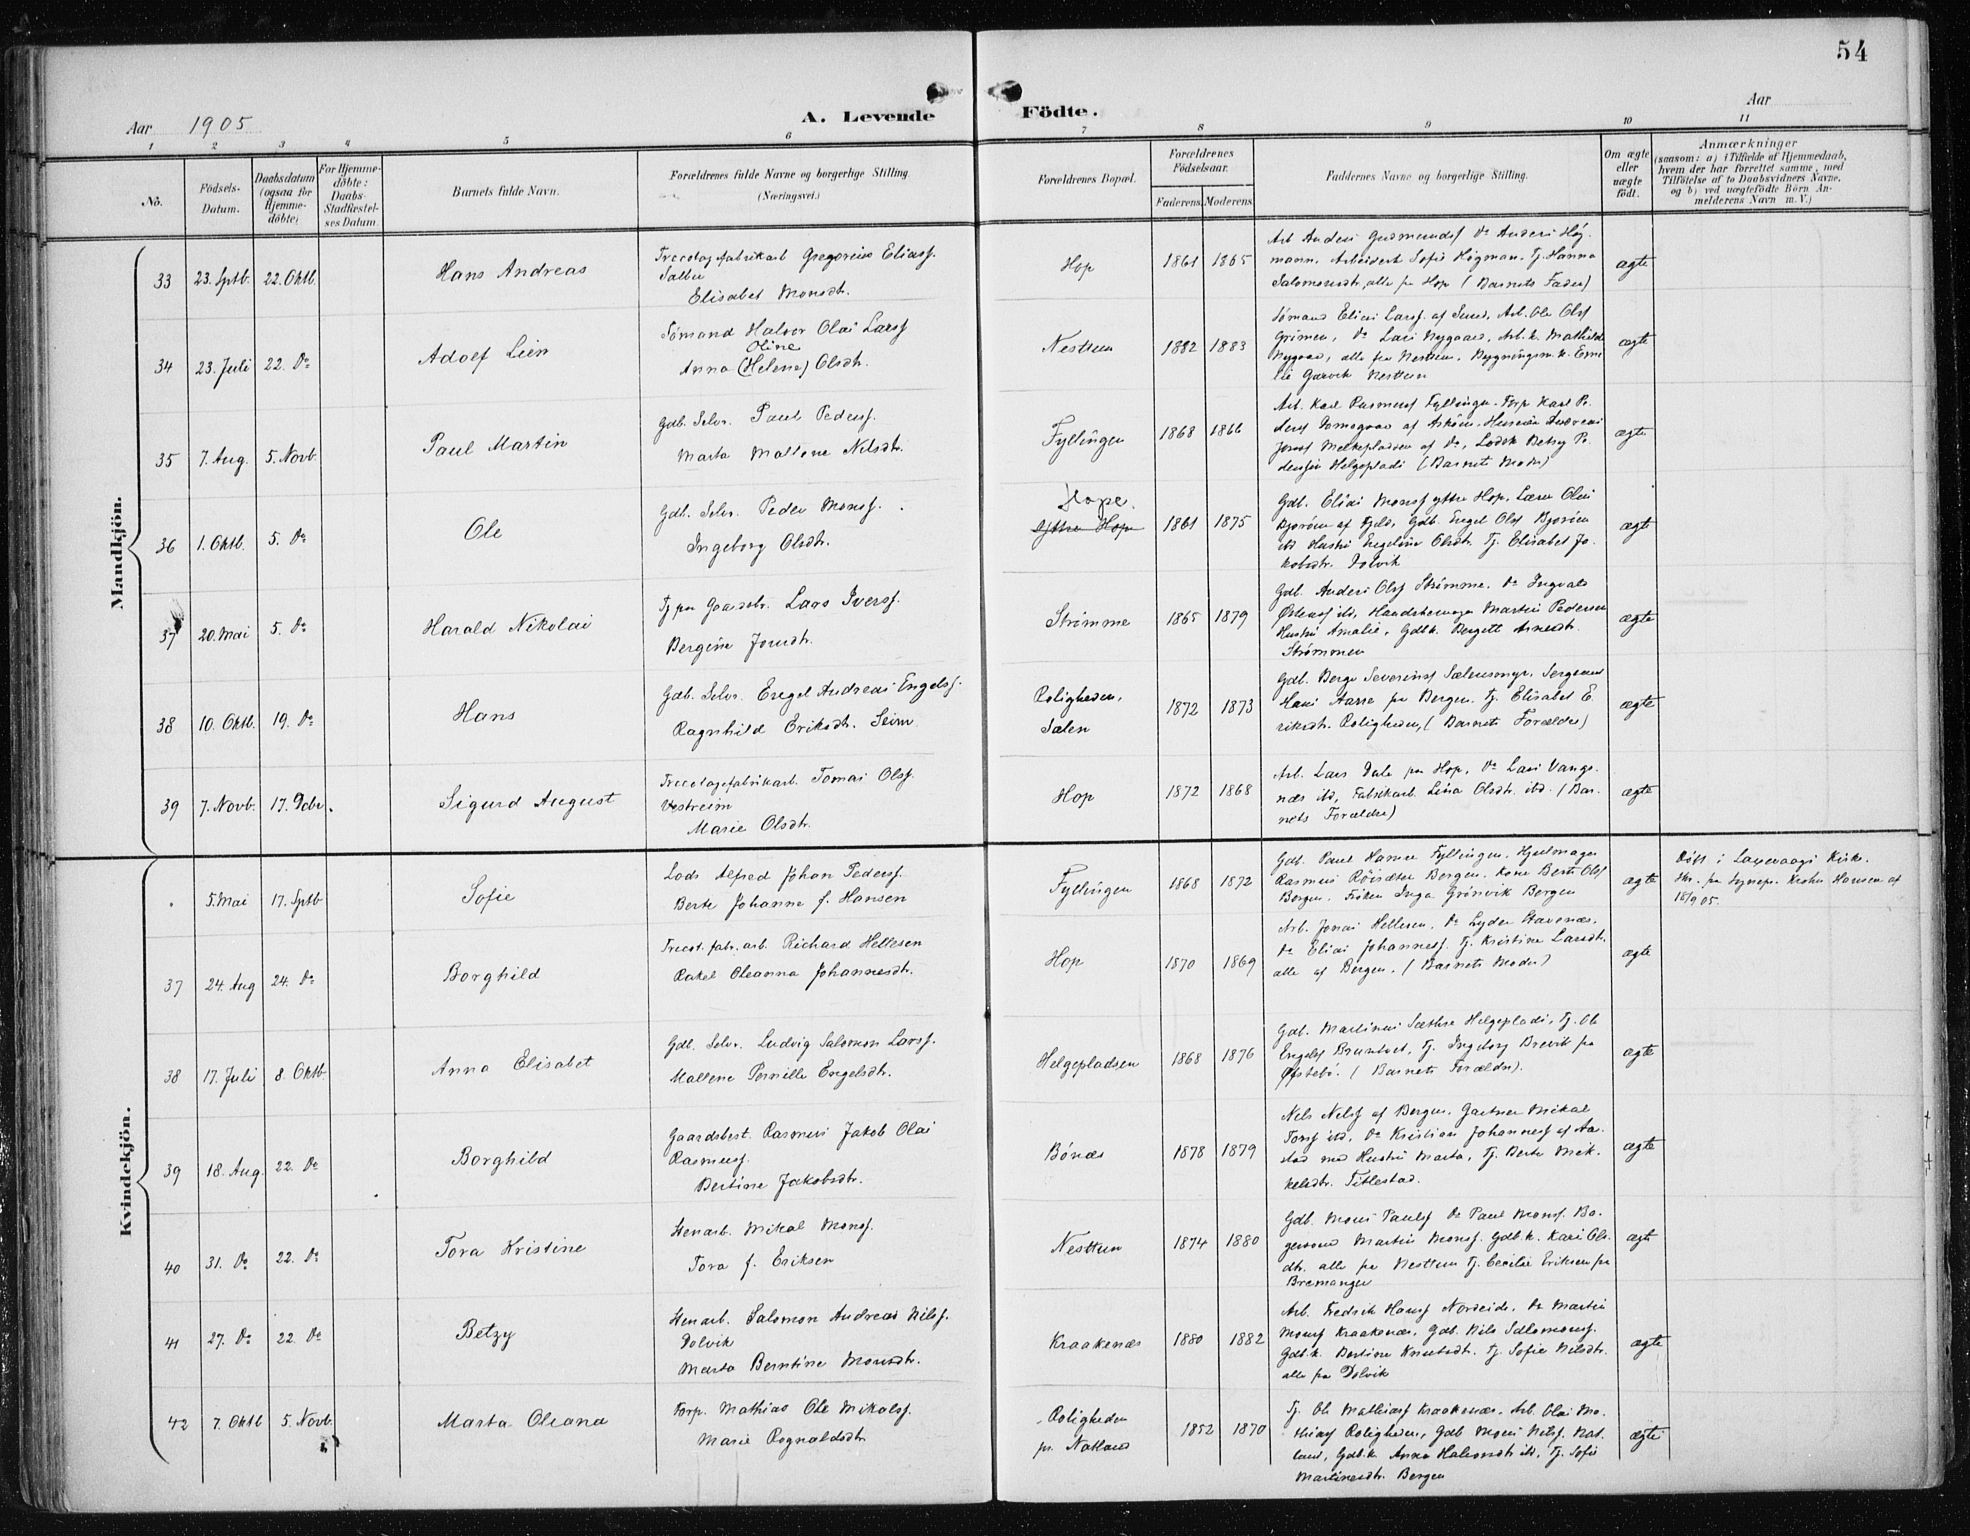 54
Aar 1905
A. Levende Födte.
Aar
1 2 3 4 5 6 7 8 9 10 11
No.
Födsels-
Datum.
Daabsdatum
(ogsaa for
Hjemme-
döbte)
For Hjemme-
döbte:
Daabs-
Stadfæstel-
ses Datum
Barnets fulde Navn.
Forældrenes fulde Navne og borgerlige Stilling.
(Næringsvei.)
Forældrenes Bopæl.
Forældrenes
Födselsaar.
Faderens. Moderens.
Faddernes Navne og borgerlige Stilling.
Om ægte
eller
uægte
födt.
Anmærkninger
(saasom: a) i Tilfælde af Hjemmedaab,
hvem der har forrettet samme, med
Tilföielse af to Daabsvidners Navne,
og b) ved uægtefödte Börn An-
melderens Navn m. V.)
Mandkjön.
33 23. Sptb. 22. Oktb. Hans Andreas
Tricotagefabrikarb Gregorius Eliass.
Sælen
Elisabet Monsdtr.
Hop 1861 1865
Arb Anders Gudmundss Do Anders Høg-
mann, Arbeiderk Sofie Høgman, Tj. Hanna
Salomonsdtr, alle fra Hop (Barnets Fader)
ægte
34 23. Juli 22. Do Adolf Lien
Sömand Halvor Olai Larss
Oline
Anna (Helene) Olsdtr.
Nesttun 1882 1883
Sømand Elias Larss. af Sund, Arb. Ole Olss
Grimen, Do Lars Nygaard, Arb. k. Mathilde
Nygaard, alle fra Nesttun, Bygningsm. k. Emi
lie Garvik Nesttun
ægte
35 7. Aug. 5. Novb. Paul Martin
Gdb. Selv. Paul Pederss.
Marta Maltene Nilsdtr.
Fyllingen 1868 1866
Arb. Karl Rasmuss Fyllingen. Forp Karl Pe
derss
af Do, Lodsk Betsy Pe
dersen Helgeplads (Barnets Moder)
ægte
36 1. Oktb. 5. Do Ole
Gdb. Selv. Peder Monss.
Ingeborg Olsdtr.
Hope.
Ytre Hop 1861 1875
Gdb. Elias Monss ytre Hop, Lærer Olai
Bjorøen af Fjeld, Gdb. Engel Olss Bjorøen
ibd Hustru Engeline Olsdtr. Tj. Elisabet Ja-
kobsdtr. Dolvik
ægte
37 20. Mai 5. Do Harald Nikolai
Tj paa Gaardsbr. Lars Iverss.
Bergine Jonsdtr.
Strømme 1865 1879
Gdb. Anders Olss Strømme, Do Ingvald
Østenss ibd, Handskemager Martin Pedersen
Hustru Amalie, Gdbk. Bergett Arnesdtr.
Strømmen
ægte
38 10. Oktb. 19. Do Hans
Gdb. Selv. Engel Andreas Engelss.
Ragnhild Eriksdtr. Seim
Roligheden,
Sælen
1872 1873
Gdb. Berge Severinss Sælensmyr, Sergeant
Hans Aasse fra Bergen, Tj. Elisabet E
riksdtr. Roligheden, (Barnets Forældre)
ægte
39 7. Novb. 17. Debr. Sigurd August
Tricotagefabrikarb. Tomas Olss.
Vestreim
Marie Olsdtr.
Hop 1872 1868
Arb. Lars Dale fra Hop, Do Lars Vangs-
næs ibd, Fabrikarb. Lina Olsdtr. ibd. (Bar-
nets Forældre)
ægte
Kvindekjön.
5. Mai 17. Sptb Sofie
Lods Alfred Johan Pederss.
Berte Johanne f. Hansen
Fyllingen 1868 1872
Gdb. Paul Hansen Fyllingen, Hjulmager
Rasmus Røisæter Bergen, Kone Berte Olss
Bergen, Frøken Inga Grønvik Bergen
ægte
Døbt i Laxevaags Kirke.
Skr. fra Sognepr. Krohn Hansen af
18/9 05.
37 24. Aug 24. Do Borghild
Tricot. fabr. arb. Richard Hellesen
Rakel Oleanna Johannesdtr.
Hop 1870 1869
Arb. Jonas Hellesen, Do Lyder Stavenæs,
Do Elias Johanness. Tj. Kristine Larsdtr.
alle af Bergen. (Barnets Moder)
ægte
38 17. Juli 8. Oktb. Anna Elisabet
Gdb. Selv. Ludvig Salomon Larss.
Mallene Pernille Engelsdtr.
Helgepladsen 1868 1876
Gdb. Martinus Sæthre Helgeplads, Tj. Ole
Engelss Bruntvet, Tj. Ingeborg Brevik fra
Østebø. (Barnets Forældre).
ægte
39 18. Aug. 22. Do Borghild
Gaardsbest. Rasmus Jakob Olai
Rasmuss.
Bertine Jakobsdtr.
Bønæs 1878 1879
Nels Nelss af Bergen, Gartner Mikal
Torss ibd, Do Kristian Johanness af Aa-
stad med Hustru Marta, Tj. Berte Mik-
kelsdtr. Titlestad.
ægte
40 31. Do 22. Do Tora Kristine
Stenarb. Mikal Monss.
Tora f. Eriksen
Nesttun 1874 1880
Gdb. Mons Paulss Do Paul Monss. Bo-
gerard Martin Monss. Gdb. k. Kari Ols-
dtr. alle fra Nesttun Tj. Cecilie Eriksen fra
Bremanger
ægte
41 27. Do 22. Do Betzy
Stenarb. Salomon Andreas Nilss.
Dolvik
Marta Berntine Monsdtr.
Kraakenæs 1880 1882
Arb. Fredrik Hanss Nordeide, Do Martin
Monss Kraakenæs, Gdb. Nils Salomonss.
Gdb.k. Bertine Knutsdtr. Tj. Sofie Nilsdtr.
alle fra Dolvik
ægte
42 7. Oktb 5. Novb. Marta Oleana
Forp. Mathias Ole Mikalss.
Marie Rognaldsdtr
Roligheden
pr. Natland
1852 1870
Tj. Ole Mathiass Kraakenæs, Arb. Olai Ma-
thiass Roligheden, Gdb Mons Nilss. Nat-
land, Gdb.k. Anna Halvorsdtr ibd, Tj. Sofie
Martinesdtr. Bergen
ægte